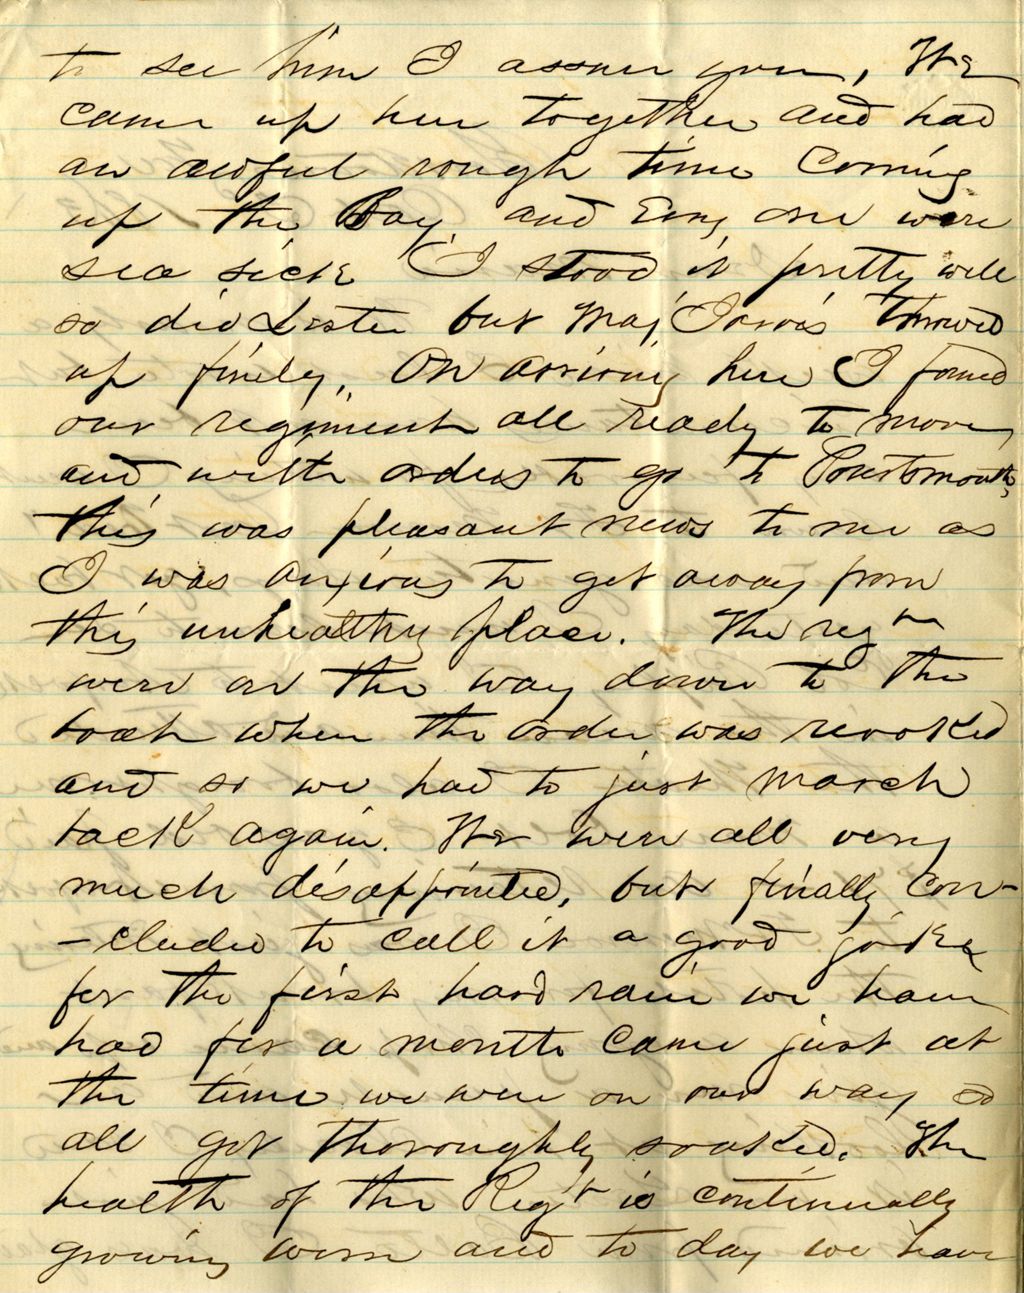 to see him I assure you, We
came up here together and had
an awful rough time coming
up the Bay, and every one were
sea sick I stood it pretty well
so did Lester but Maj Jarvis throwed
up finely. On arriving here I found
our regiment all ready to move
and with orders to go to Pourtsmouth,
this was pleasant news to me as
I was anxious to get away from
this unhealthy place. The regm
were on the way down to the
boat when the order was revoked
and so we had to just march
back again. We were all very
much disappointed, but finally con-
-cluded to call it a good joke
for the first hard rain we have
had for a month came just at
the time we were on our way so
all got thoroughly soaked. The
health of the Regt is continually
growing worse and to day we have